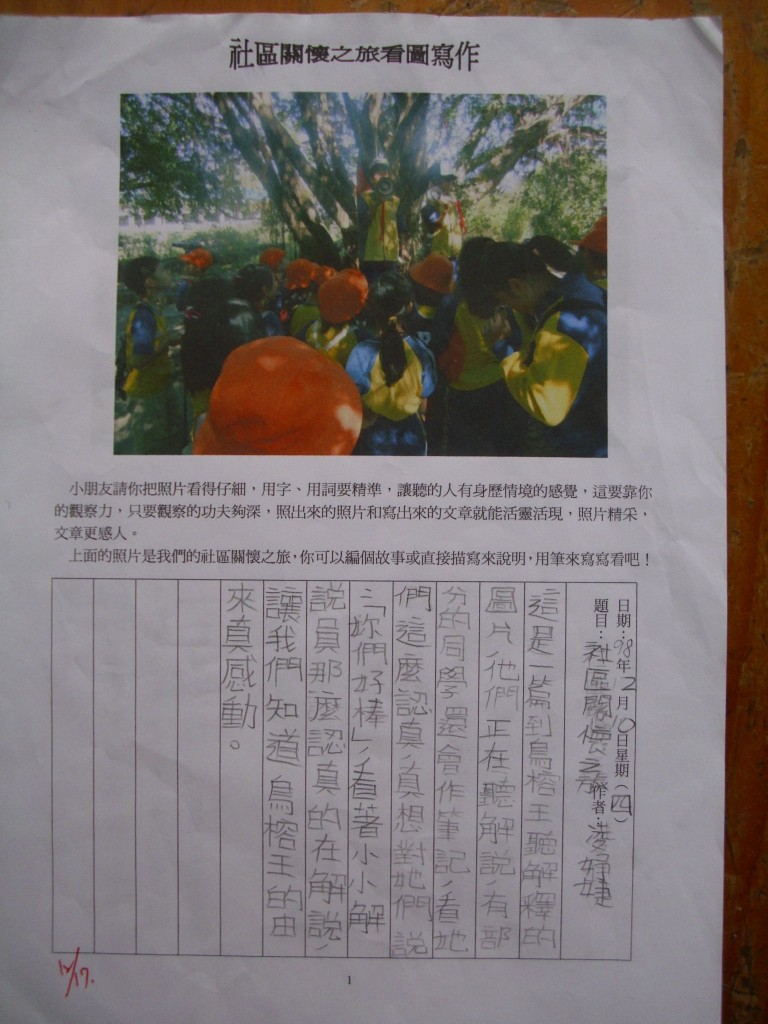 社區關懷之旅看圖寫作
小朋友請你把照片看得仔細，用字、用詞要精準，讓聽的人有身歷情境的感覺，這要靠你
的觀察力，只要觀察的功夫夠深，照出來的照片和寫出來的文章就能活靈活現，照片精采，
文章更感人。
上面的照片是我們的社區關懷之旅，你可以編個故事或直接描寫來說明，用筆來寫寫看吧！
日期：98年12月10日星期（四）
題目：社區關懷之旅作者：凌婕
這是一篇到鳥榕王聽解釋的
圖片，他們正在聽解說，有部
分的同學還會作筆記，看她
們這麼認真，真想對她們說
：「妳們好棒」，看著小小解
說員那麼認真的在解說，
讓我們知道鳥榕王的由
來真感動。
12/17.
1